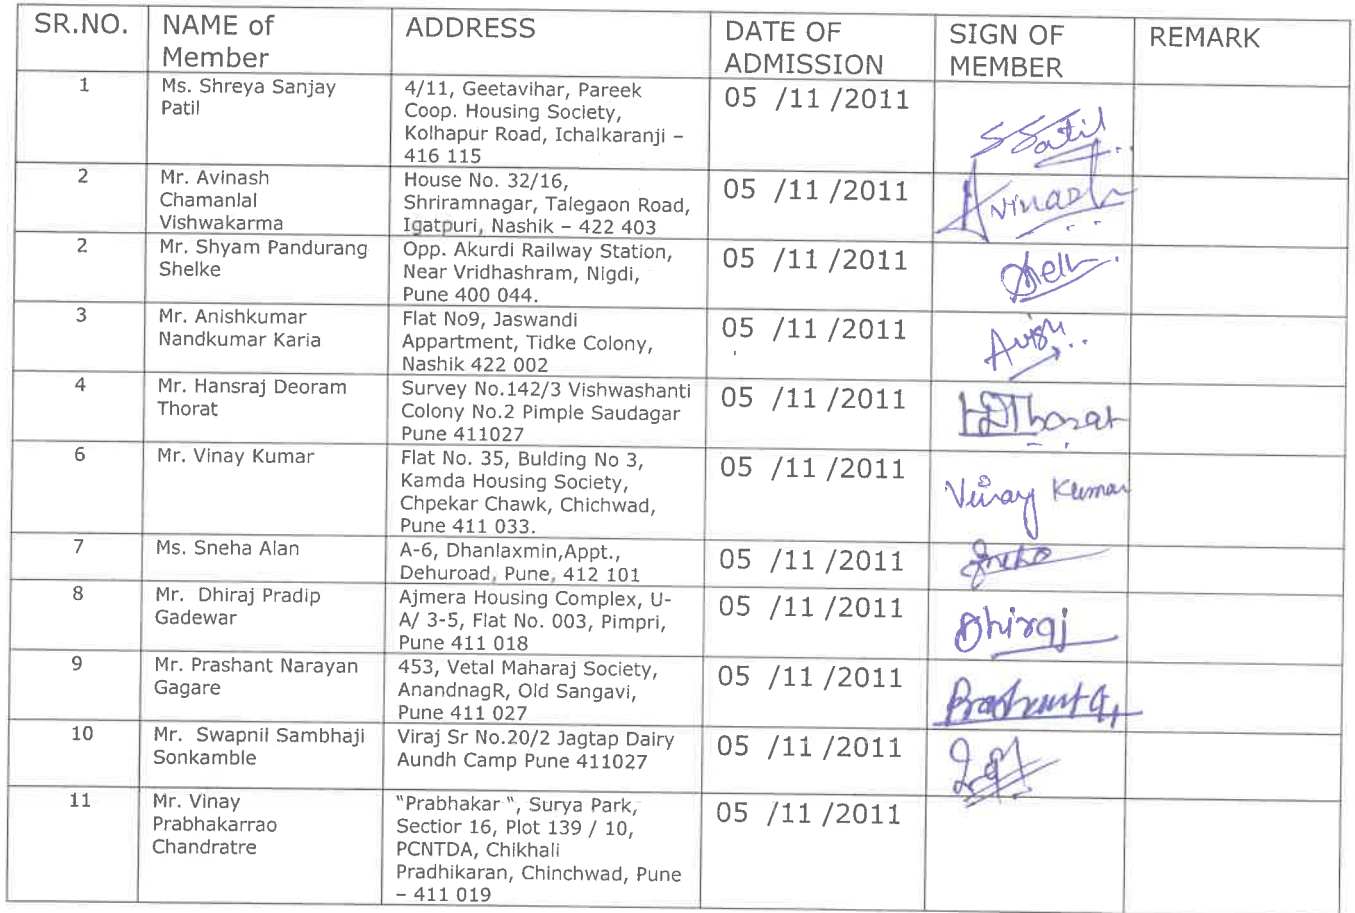 SR.NO. NAME of Member ADDRESS DATE OF ADMISSION SIGN OF MEMBER REMARK
1 Ms. Shreya Sanjay Patil 4/11, Geetavihar, Pareek Coop. Housing Society, Kolhapur Road, Ichalkaranji – 416 115 05 /11 /2011 SSPatil
2 Mr. Avinash Chamanlal Vishwakarma House No. 32/16, Shriramnagar, Talegaon Road, Igatpuri, Nashik – 422 403 05 /11 /2011 Avinash
2 Mr. Shyam Pandurang Shelke Opp. Akurdi Railway Station, Near Vridhashram, Nigdi, Pune 400 044. 05 /11 /2011
3 Mr. Anishkumar Nandkumar Karia Flat No9, Jaswandi Appartment, Tidke Colony, Nashik 422 002 05 /11 /2011
4 Mr. Hansraj Deoram Thorat Survey No.142/3 Vishwashanti Colony No.2 Pimple Saudagar Pune 411027 05 /11 /2011 HDThorat
6 Mr. Vinay Kumar Flat No. 35, Bulding No 3, Kamda Housing Society, Chpekar Chawk, Chichwad, Pune 411 033. 05 /11 /2011 Vinay Kumar
7 Ms. Sneha Alan A-6, Dhanlaxmin,Appt., Dehuroad, Pune, 412 101 05 /11 /2011 Sneha
8 Mr. Dhiraj Pradip Gadewar Ajmera Housing Complex, U-A/ 3-5, Flat No. 003, Pimpri, Pune 411 018 05 /11 /2011 Dhiraj
9 Mr. Prashant Narayan Gagare 453, Vetal Maharaj Society, AnandnagR, Old Sangavi, Pune 411 027 05 /11 /2011 Prashant G,
10 Mr. Swapnil Sambhaji Sonkamble Viraj Sr No.20/2 Jagtap Dairy Aundh Camp Pune 411027 05 /11 /2011
11 Mr. Vinay Prabhakarrao Chandratre "Prabhakar ", Surya Park, Sectior 16, Plot 139 / 10, PCNTDA, Chikhali Pradhikaran, Chinchwad, Pune – 411 019 05 /11 /2011